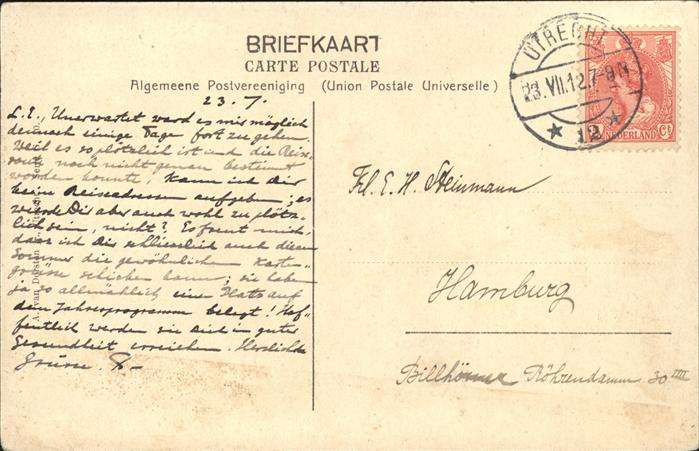 BRIEFKAART
CARTE POSTALE
Algemeene Postvereeniging (Union Postale Universelle)
23.7.
L.E., Unerwartet ward es mir möglich
dennoch einige Tage fort zu gehen.
Weil es so plötzlich ist und die Reise-
route noch nicht genau bestimmt
worden konnte, kann ich Dir
keine Reiseadressen aufgeben; es
würde Dir aber auch wohl zu plötz-
lich sein, nicht? Es freut mich,
dass ich Dir schliesslich auch diesen
Sommer die gewöhnlichen Karten-
grüsse schicken kann; sie haben
ja so allmählich eine Platz auf
dem Jahresprogramm belegt! Hof-
fentlich werden sie Dich in guter
Gesundheit erreichen. Herzliche
Grüsse.
UTRECHT
23.VII.12.7-8N
12
NEDERLAND
Frl. E. H. Steinmann
Hamburg
Röhrendamm 30 IIII